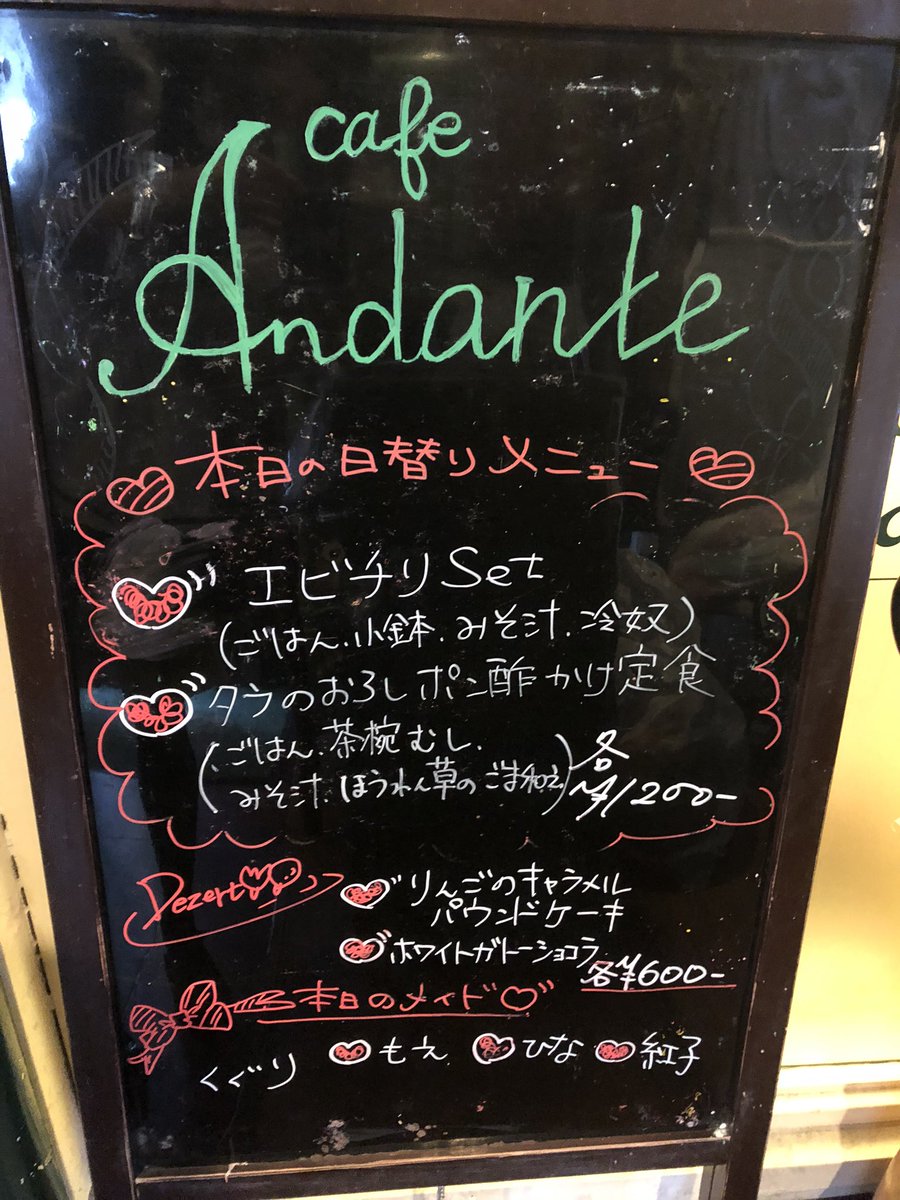 cafe
Andante
本日の日替りメニュー
エビチリSet
(ごはん.小鉢.みそ汁.冷奴)
タラのおろしポン酢かけ定食
(ごはん.茶椀むし.
みそ汁.ほうれん草のごま和え)
各
¥1200-
Dezert
りんごのキャラメル
パウンドケーキ
ホワイトガトーショコラ
各¥600-
本日のメイド
くぐり もえ ひな 紅子